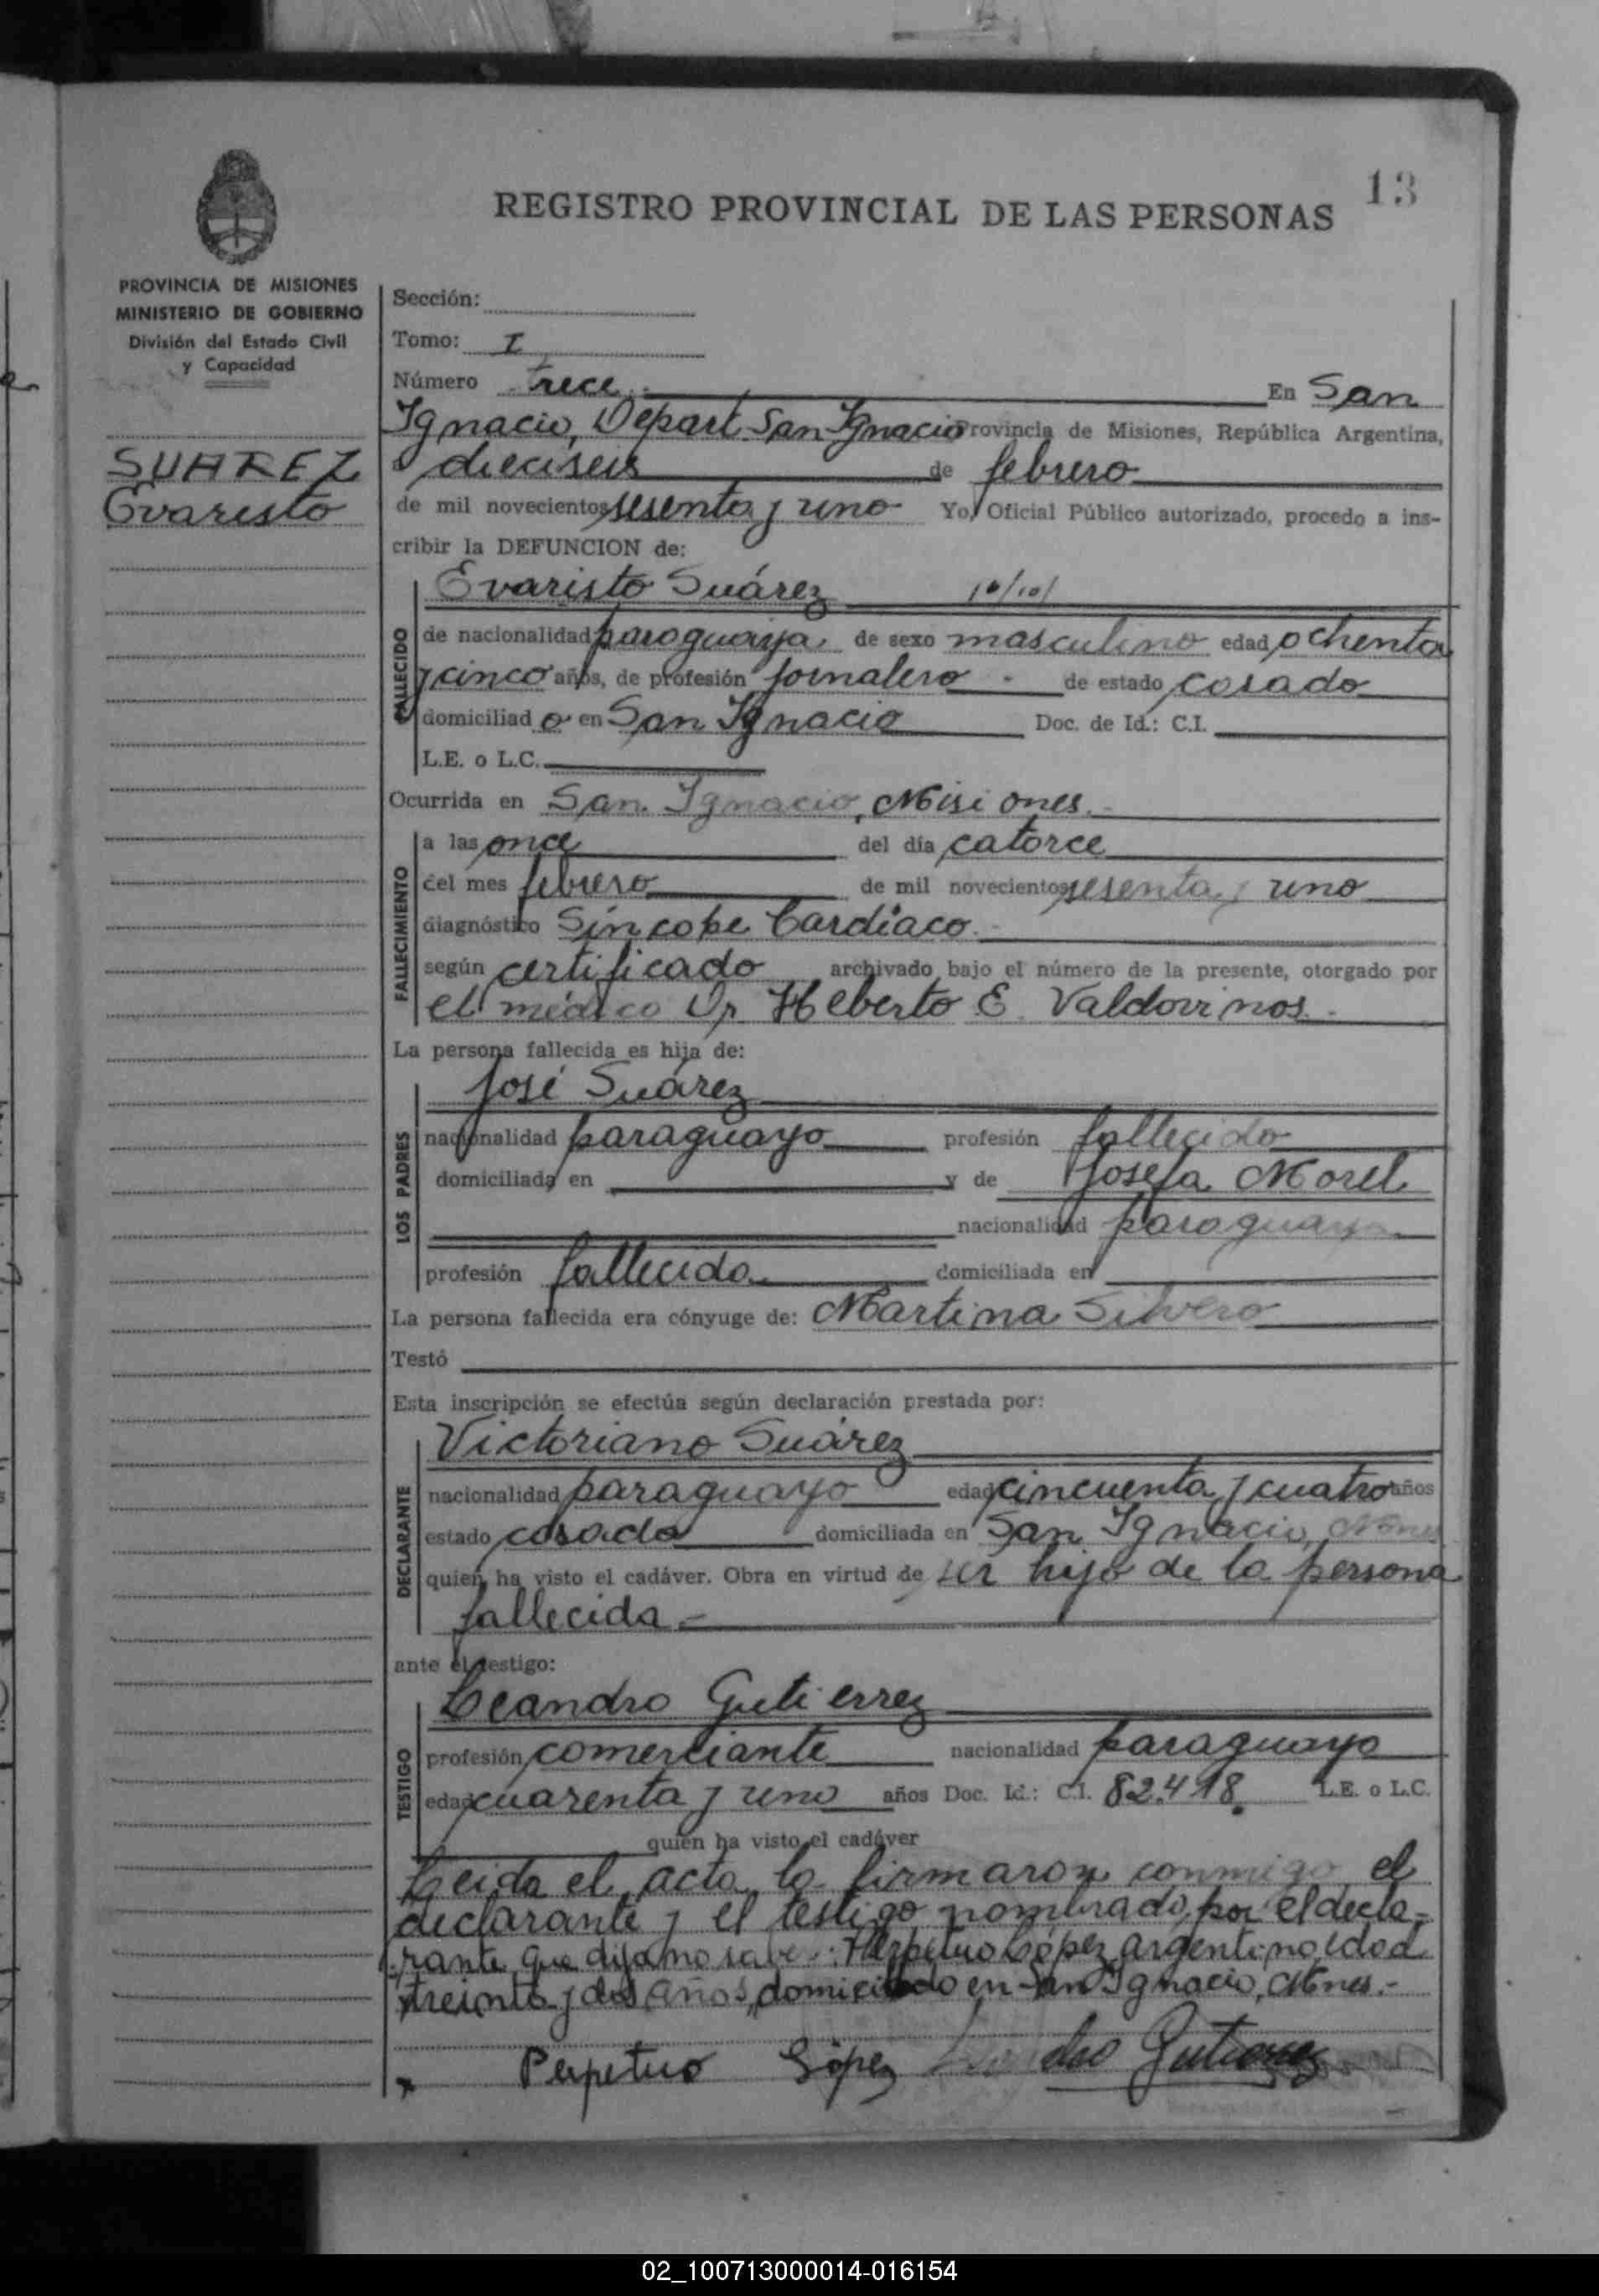 13
REGISTRO PROVINCIAL DE LAS PERSONAS
PROVINCIA DE MISIONES
MINISTERIO DE GOBIERNO
División del Estado Civil
y Capacidad
SUAREZ
Evaristo
Sección:
Tomo: I
Número trece.- En San
Ignacio, Depart. San Ignacio Provincia de Misiones, República Argentina,
a dieciseis de febrero
de mil novecientos sesenta y uno Yo, Oficial Público autorizado, procedo a ins-
cribir la DEFUNCION de:
Evaristo Suárez
FALLECIDO
de nacionalidad paraguaya de sexo masculino edad ochenta
y cinco años, de profesión jornalero - de estado casado
domiciliad o en San Ignacio Doc. de Id.: C.I.
L.E. o L.C.
Ocurrida en San Ignacio, Misiones.-
FALLECIMIENTO
a las once del día catorce
del mes febrero de mil novecientos sesenta y uno
diagnóstico Síncope Cardíaco.-
según certificado archivado bajo el número de la presente, otorgado por
el médico Dr. Heberto E. Valdovinos.-
La persona fallecida es hija de:
LOS PADRES
José Suárez
nacionalidad paraguayo profesión fallecido
domiciliada en y de Josefa Morel
nacionalidad paraguaya
profesión fallecida domiciliada en
La persona fallecida era cónyuge de: Martina Silvero
Testó
Esta inscripción se efectúa según declaración prestada por:
DECLARANTE
Victoriano Suárez
nacionalidad paraguayo edad cincuenta y cuatro años
estado casado domiciliada en San Ignacio, Mnes
quien ha visto el cadáver. Obra en virtud de ser hijo de la persona
fallecida -
ante el testigo:
TESTIGO
Leandro Gutierrez
profesión comerciante nacionalidad paraguayo
edad cuarenta y uno años Doc. Id.: C.I. 82.418. L.E. o L.C.
quien ha visto el cadáver
Leida el acta la firmaron conmigo el
declarante y el testigo nombrado, por el decla-
rante que dijo no saber: Perpetuo López, argentino, edad
treinta y dos años, domiciliado en San Ignacio, Mnes.-
Perpetuo López Leandro Gutierrez
02_100713000014-016154